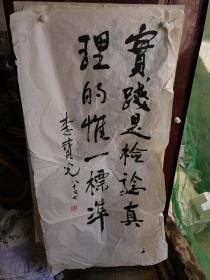 實踐是檢驗真
理的惟一標準
李寶光